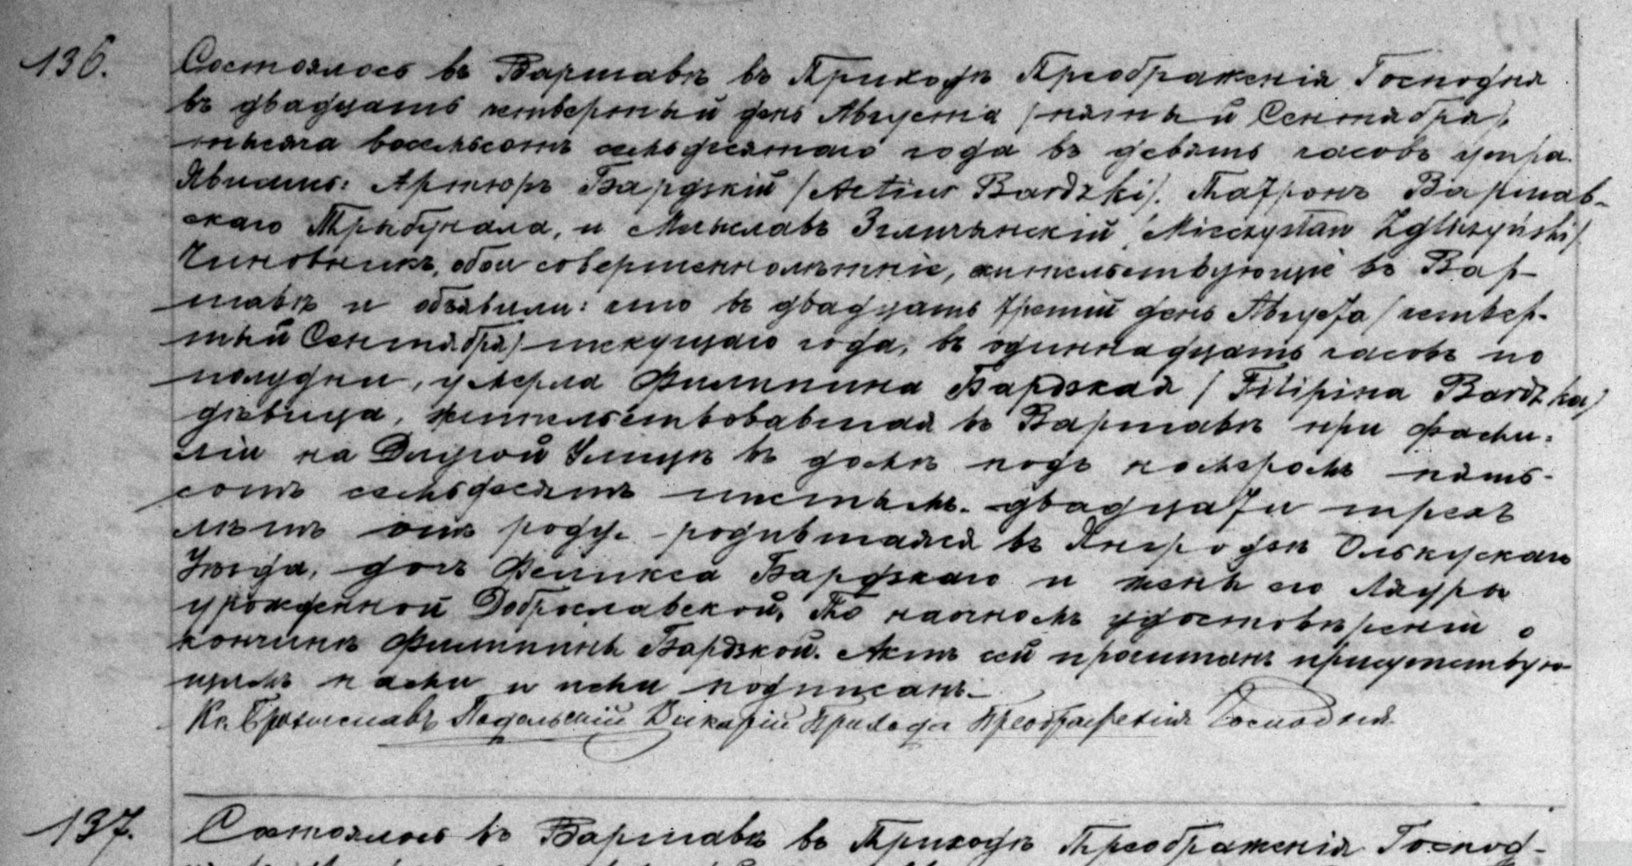 136.
Состоялось въ Варшавѣ въ Приходѣ Преображенія Господня
въ двадцать четвертый день Августа /пятый Сентября/
тысяча восемьсот семьдесятаго года въ девять часовъ утра.
Явились: Артюръ Бардзкій /Artiur Bardzki/. Патронъ Варшав-
скаго Трыбунала, и Мечыславъ Згличынскій /Mieczysław Zgliczyński/
Чиновникъ, обои совершеннолѣтніе, жительствующіе въ Вар-
шавѣ и объявили: что въ двадцать третій день Августа /четвер-
тый Сентября/ текущаго года, въ одиннадцать часовъ по
полудни, умерла Филипина Бардзкая /Filipina Bardzka/
дѣвица, жительствовавшая въ Варшавѣ при фами-
ліи на Длугой Улицѣ въ домѣ подъ номеромъ пять-
сотъ семьдесятъ шестымъ. двадцати трехъ
лѣтъ отъ роду. родившаяся въ Янгродѣ Олькускаго
Уѣзда, дочь Феликса Бардзкаго и жены его Лауры
урожденной Доброславской. По наочномъ удостовѣреніи о
кончинѣ Филипины Бардзкой. Актъ сей прочитанъ присутствую-
щимъ нами и ими подписанъ.
Кс. Брониславъ Подольскій Викарій Прихода Преображенія Господня
137.
Состоялось въ Варшавѣ въ Приходѣ Преображенія Господ-